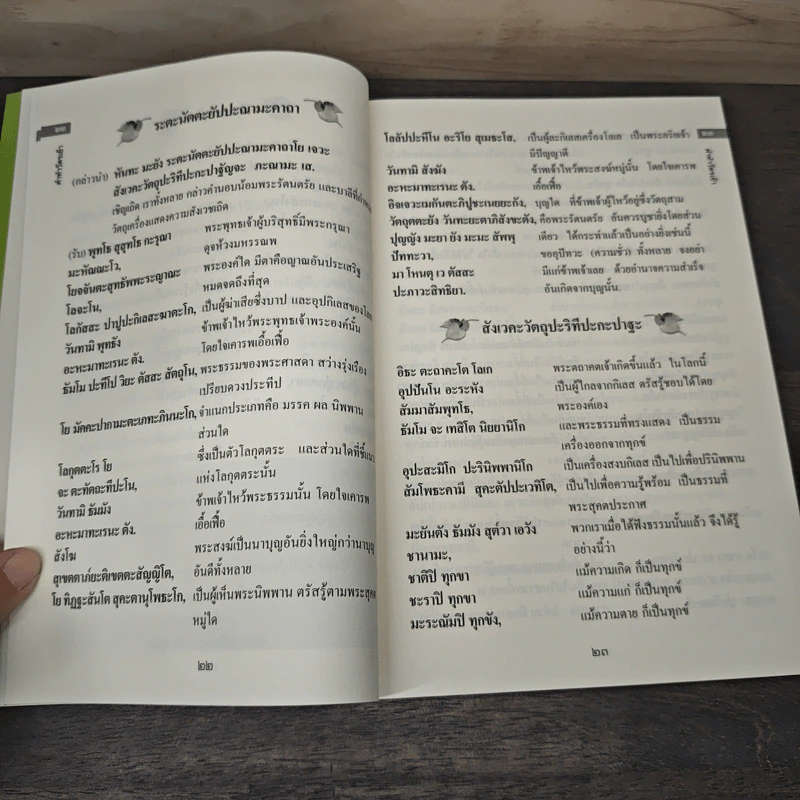 ๒๒
คำทำวัตรเช้า
ระตะนัตตะยัปปะณามะคาถา
(กล่าวนำ) หันทะ มะยัง ระตะนัตตะยัปปะณามะคาถาโย เจวะ
สังเวคะวัตถุปะริทีปะกะปาฐัญจะ ภะณามะ เส.
เชิญเถิด เราทั้งหลาย กล่าวคำนอบน้อมพระรัตนตรัย และบาลีที่กำหนด
วัตถุเครื่องแสดงความสังเวชเถิด
(รับ) พุทโธ สุสุทโธ กะรุณา พระพุทธเจ้าผู้บริสุทธิ์มีพระกรุณา
มะหัณณะโว, ดุจห้วงมหรรณพ
โยจจันตะสุทธัพพะระญาณะ พระองค์ใด มีตาคือญาณอันประเสริฐ
โลจะโน, หมดจดถึงที่สุด
โลกัสสะ ปาปูปะกิเลสะฆาตะโก, เป็นผู้ฆ่าเสียซึ่งบาป และอุปกิเลสของโลก
วันทามิ พุทธัง ข้าพเจ้าไหว้พระพุทธเจ้าพระองค์นั้น
อะหะมาทะเรนะ ตัง. โดยใจเคารพเอื้อเฟื้อ
ธัมโม ปะทีโป วิยะ ตัสสะ สัตถุโน, พระธรรมของพระศาสดา สว่างรุ่งเรือง
เปรียบดวงประทีป
โย มัคคะปากามะตะเภทะภินนะโก, จำแนกประเภทคือ มรรค ผล นิพพาน
ส่วนใด
โลกุตตะโร โย ซึ่งเป็นตัวโลกุตตระ และส่วนใดที่ชี้แนว
จะ ตะทัตถะทีปะโน, แห่งโลกุตตระนั้น
วันทามิ ธัมมัง ข้าพเจ้าไหว้พระธรรมนั้น โดยใจเคารพ
อะหะมาทะเรนะ ตัง. เอื้อเฟื้อ
สังโฆ พระสงฆ์เป็นนาบุญอันยิ่งใหญ่กว่านาบุญ
สุเขตตาภ๎ยะติเขตตะสัญญิโต, อันดีทั้งหลาย
โย ทิฏฐะสันโต สุคะตานุโพธะโก, เป็นผู้เห็นพระนิพพาน ตรัสรู้ตามพระสุคต
หมู่ใด
๒๒
๒๓
คำทำวัตรเช้า
โลลัปปะหีโน อะริโย สุเมธะโส, เป็นผู้ละกิเลสเครื่องโลเล เป็นพระอริยเจ้า
มีปัญญาดี
วันทามิ สังฆัง ข้าพเจ้าไหว้พระสงฆ์หมู่นั้น โดยใจเคารพ
อะหะมาทะเรนะ ตัง. เอื้อเฟื้อ
อิจเจวะเมกันตะภิปูชะเนยยะกัง, บุญใด ที่ข้าพเจ้าผู้ไหว้อยู่ซึ่งวัตถุสาม
วัตถุตตะยัง วันทะยะตาภิสังขะตัง, คือพระรัตนตรัย อันควรบูชายิ่งโดยส่วน
ปุญญัง มะยา ยัง มะมะ สัพพุ เดียว ได้กระทำแล้วเป็นอย่างยิ่งเช่นนี้
ปัททะวา, ขออุปัทวะ (ความชั่ว) ทั้งหลาย จงอย่า
มา โหนตุ เว ตัสสะ มีแก่ข้าพเจ้าเลย ด้วยอำนาจความสำเร็จ
ปะภาวะสิทธิยา. อันเกิดจากบุญนั้น.
สังเวคะวัตถุปะริทีปะกะปาฐะ
อิธะ ตะถาคะโต โลเก พระตถาคตเจ้าเกิดขึ้นแล้ว ในโลกนี้
อุปปันโน อะระหัง เป็นผู้ไกลจากกิเลส ตรัสรู้ชอบได้โดย
สัมมาสัมพุทโธ, พระองค์เอง
ธัมโม จะ เทสิโต นิยยานิโก และพระธรรมที่ทรงแสดง เป็นธรรม
เครื่องออกจากทุกข์
อุปะสะมิโก ปะรินิพพานิโก เป็นเครื่องสงบกิเลส เป็นไปเพื่อปรินิพพาน
สัมโพธะคามี สุคะตัปปะเวทิโต, เป็นไปเพื่อความรู้พร้อม เป็นธรรมที่
พระสุคตประกาศ
มะยันตัง ธัมมัง สุต๎วา เอวัง พวกเราเมื่อได้ฟังธรรมนั้นแล้ว จึงได้รู้
ชานามะ, อย่างนี้ว่า
ชาติปิ ทุกขา แม้ความเกิด ก็เป็นทุกข์
ชะราปิ ทุกขา แม้ความแก่ ก็เป็นทุกข์
มะระณัมปิ ทุกขัง, แม้ความตาย ก็เป็นทุกข์
๒๓